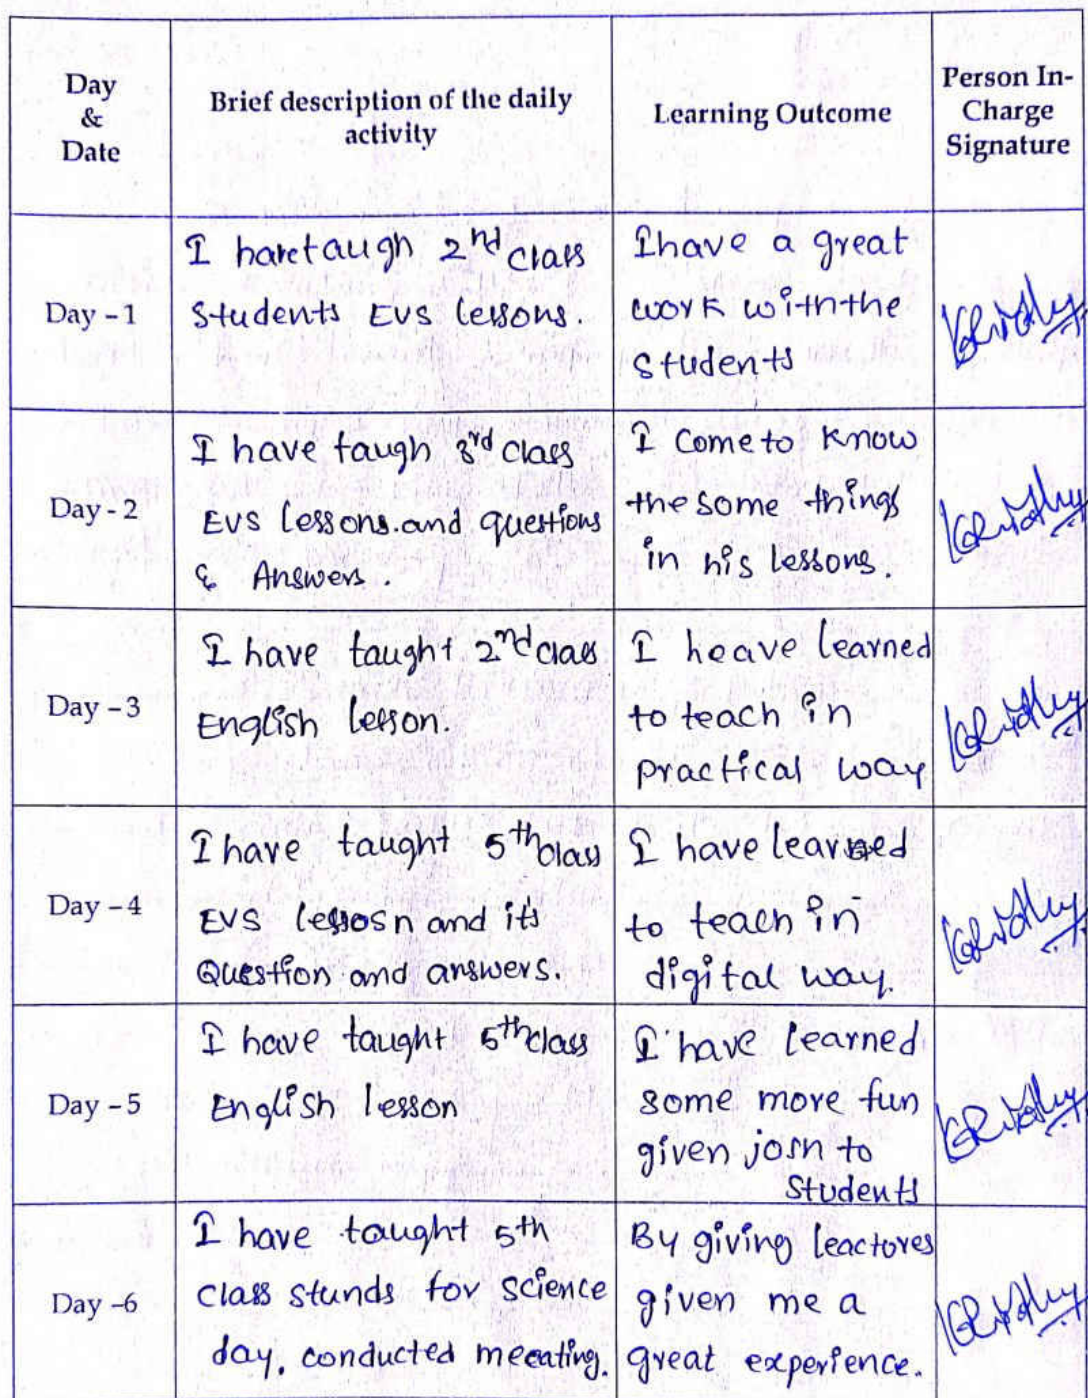 Day
&
Date
Brief description of the daily
activity
Learning Outcome
Person In-
Charge
Signature
Day – 1
I have taugh 2nd class
Students EVS lessons.
I have a great
work with the
students
Day - 2
I have taugh 3rd class
EVS lessons.and questions
& Answers.
I come to know
the some things
in his lessons.
Day – 3
I have taught 2nd class
English lesson.
I heave learned
to teach in
practical way
Day – 4
I have taught 5th class
EVS lessosn and its
Question and answers.
I have learned
to teach in
digital way.
Day – 5
I have taught 5th class
English lesson
I have learned
some more fun
given to
Students
Day –6
I have taught 5th
class stunds for science
day, conducted meeating.
By giving leactores
given me a
great experience.